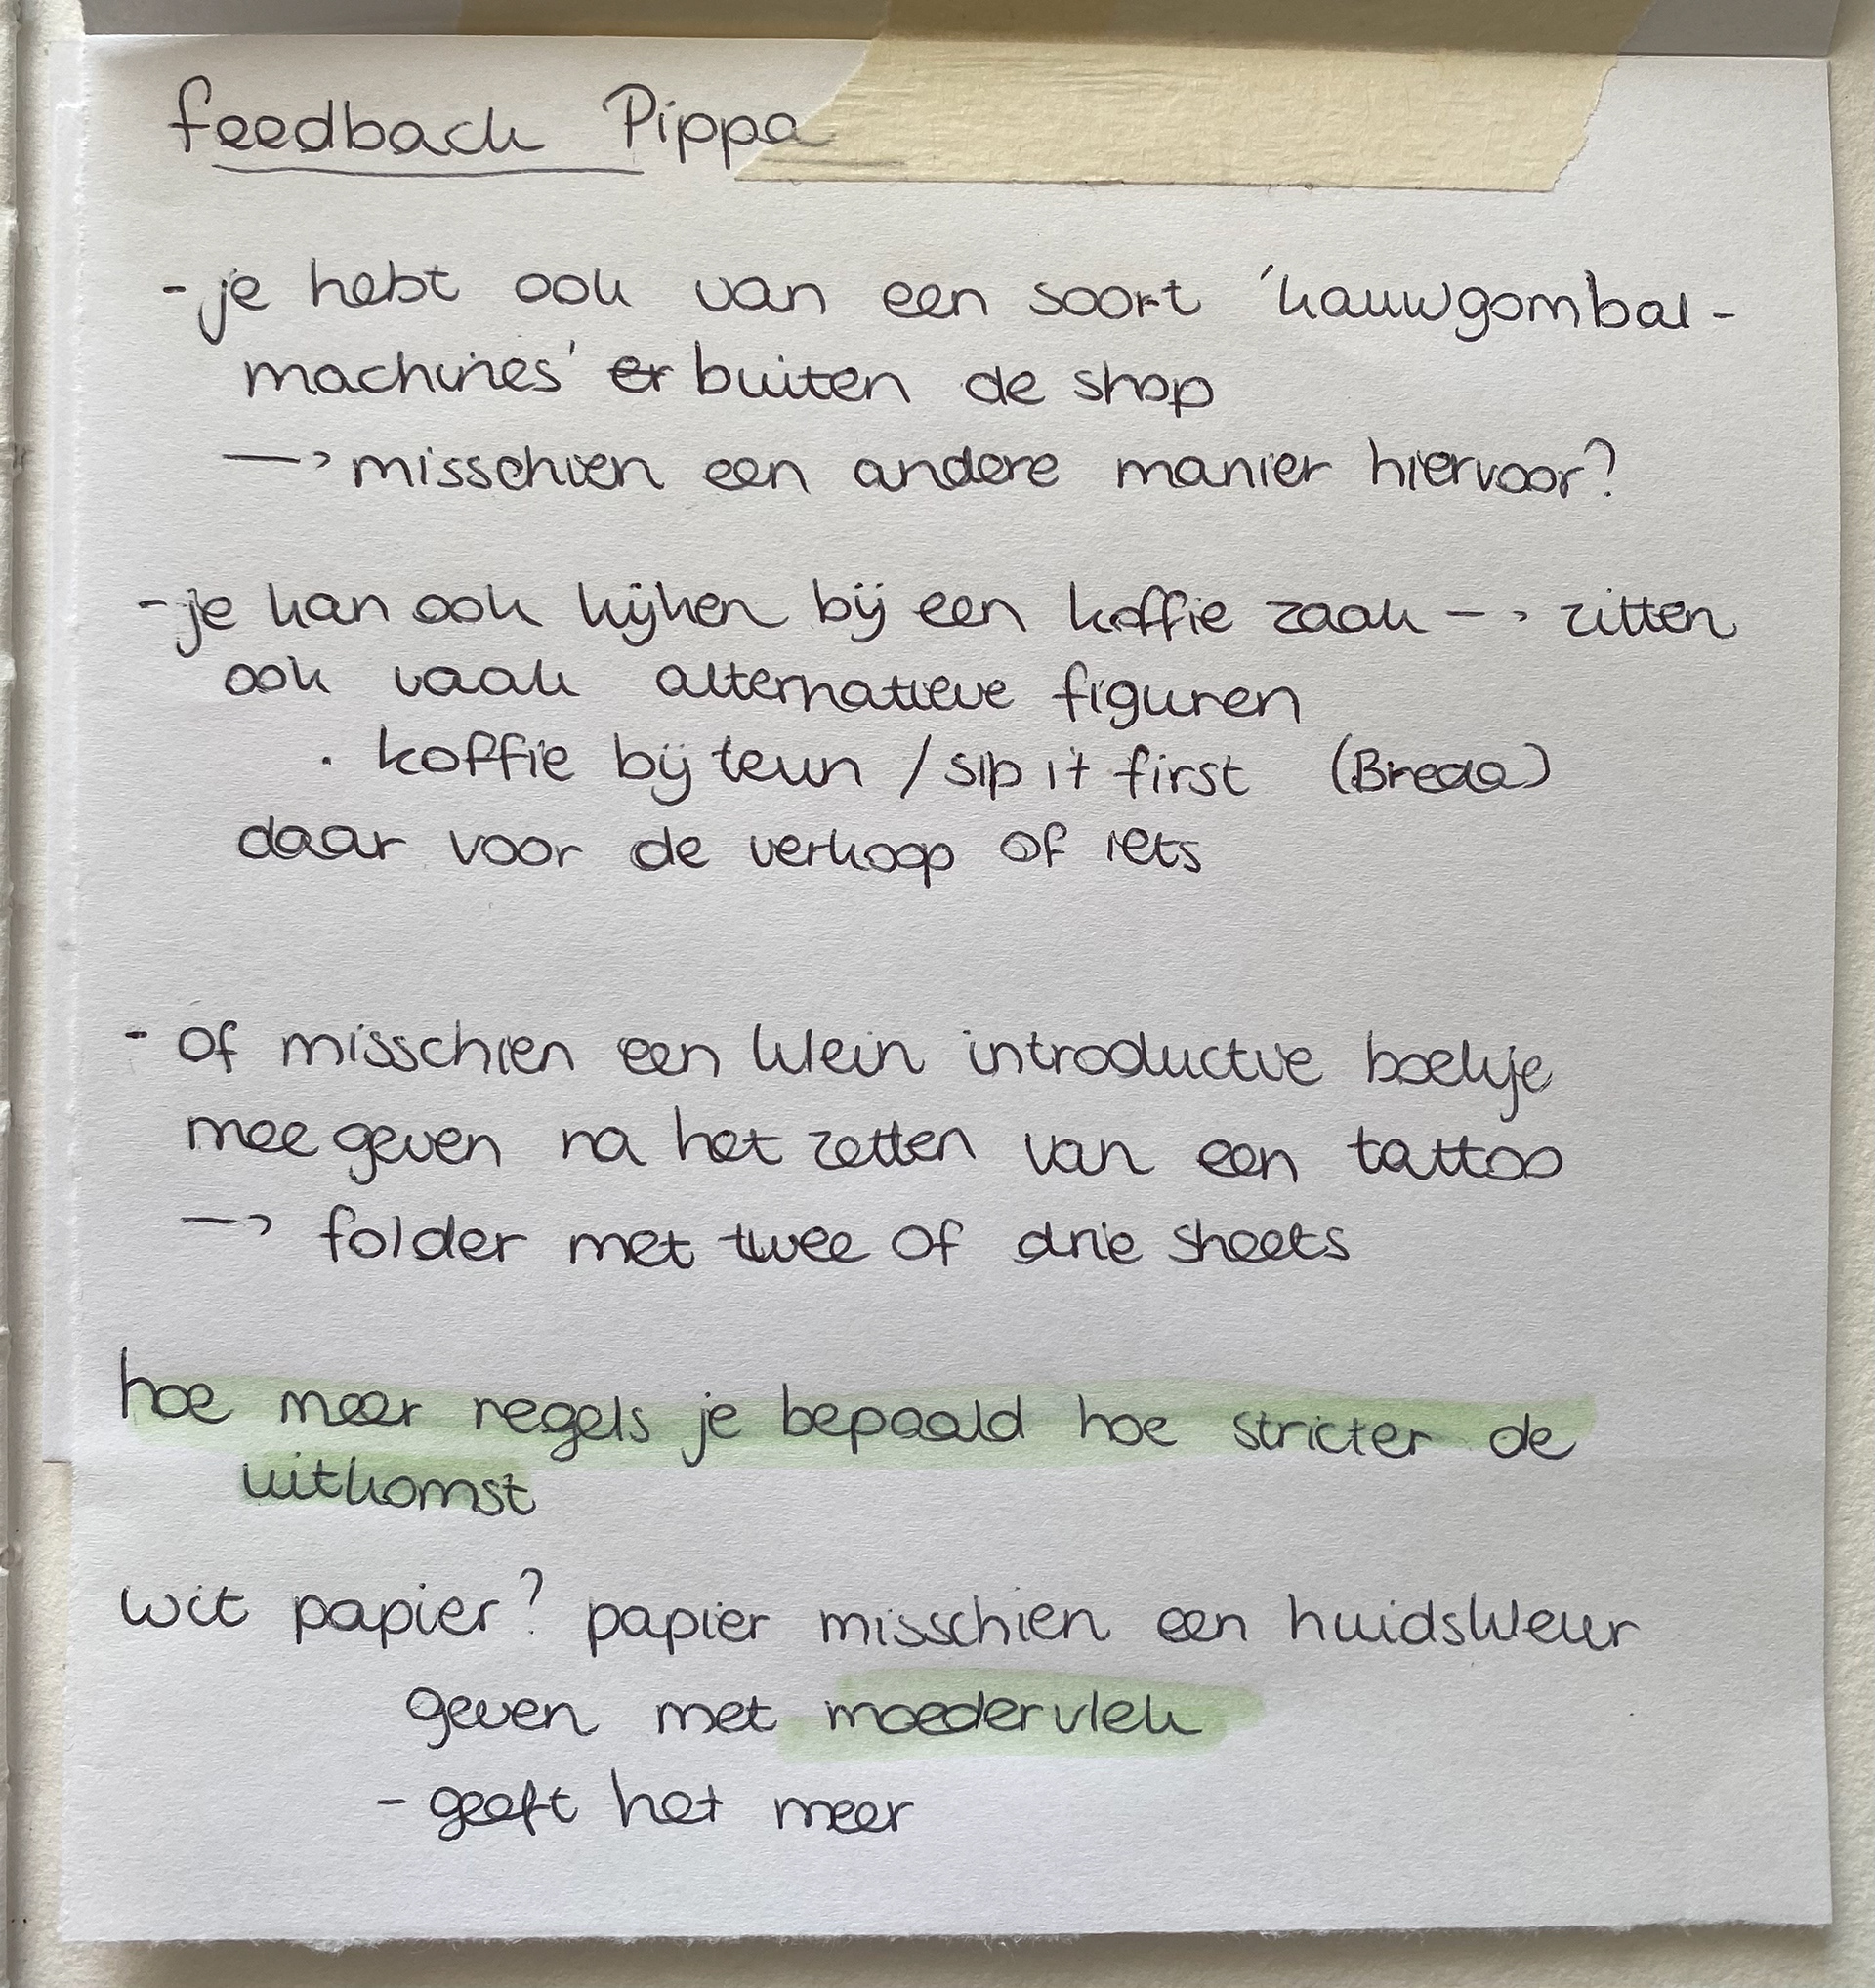 feedback Pippa
- je hebt ook van een soort 'kauwgombal-
machines' er buiten de shop
—> misschien een andere manier hiervoor?
- je kan ook kijken bij een koffie zaak —> zitten
ook vaak alternatieve figuren
· koffie bij teun / sip it first (Breda)
daar voor de verkoop of iets
- of misschien een klein introductie boekje
mee geven na het zetten van een tattoo
—> folder met twee of drie sheets
hoe meer regels je bepaald hoe stricter de
uitkomst
wit papier? papier misschien een huidskleur
geven met moedervlek
- geeft het meer